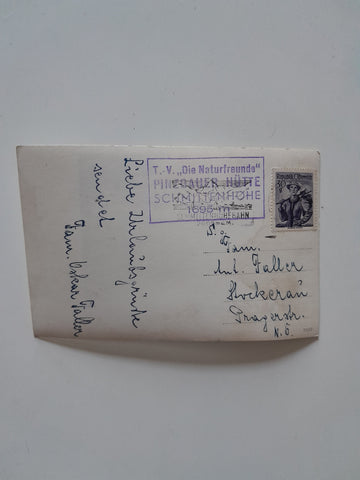 Liebe Urlaubsgrüße
sendet
Fam. Oskar Faller
T.-V. „Die Naturfreunde"
PINZGAUER HÜTTE
SCHMITTENHÖHE
REPUBLIK ÖSTERREICH
Fam.
Ant. Faller
Stockerau
Pragerstr.
N.Ö.